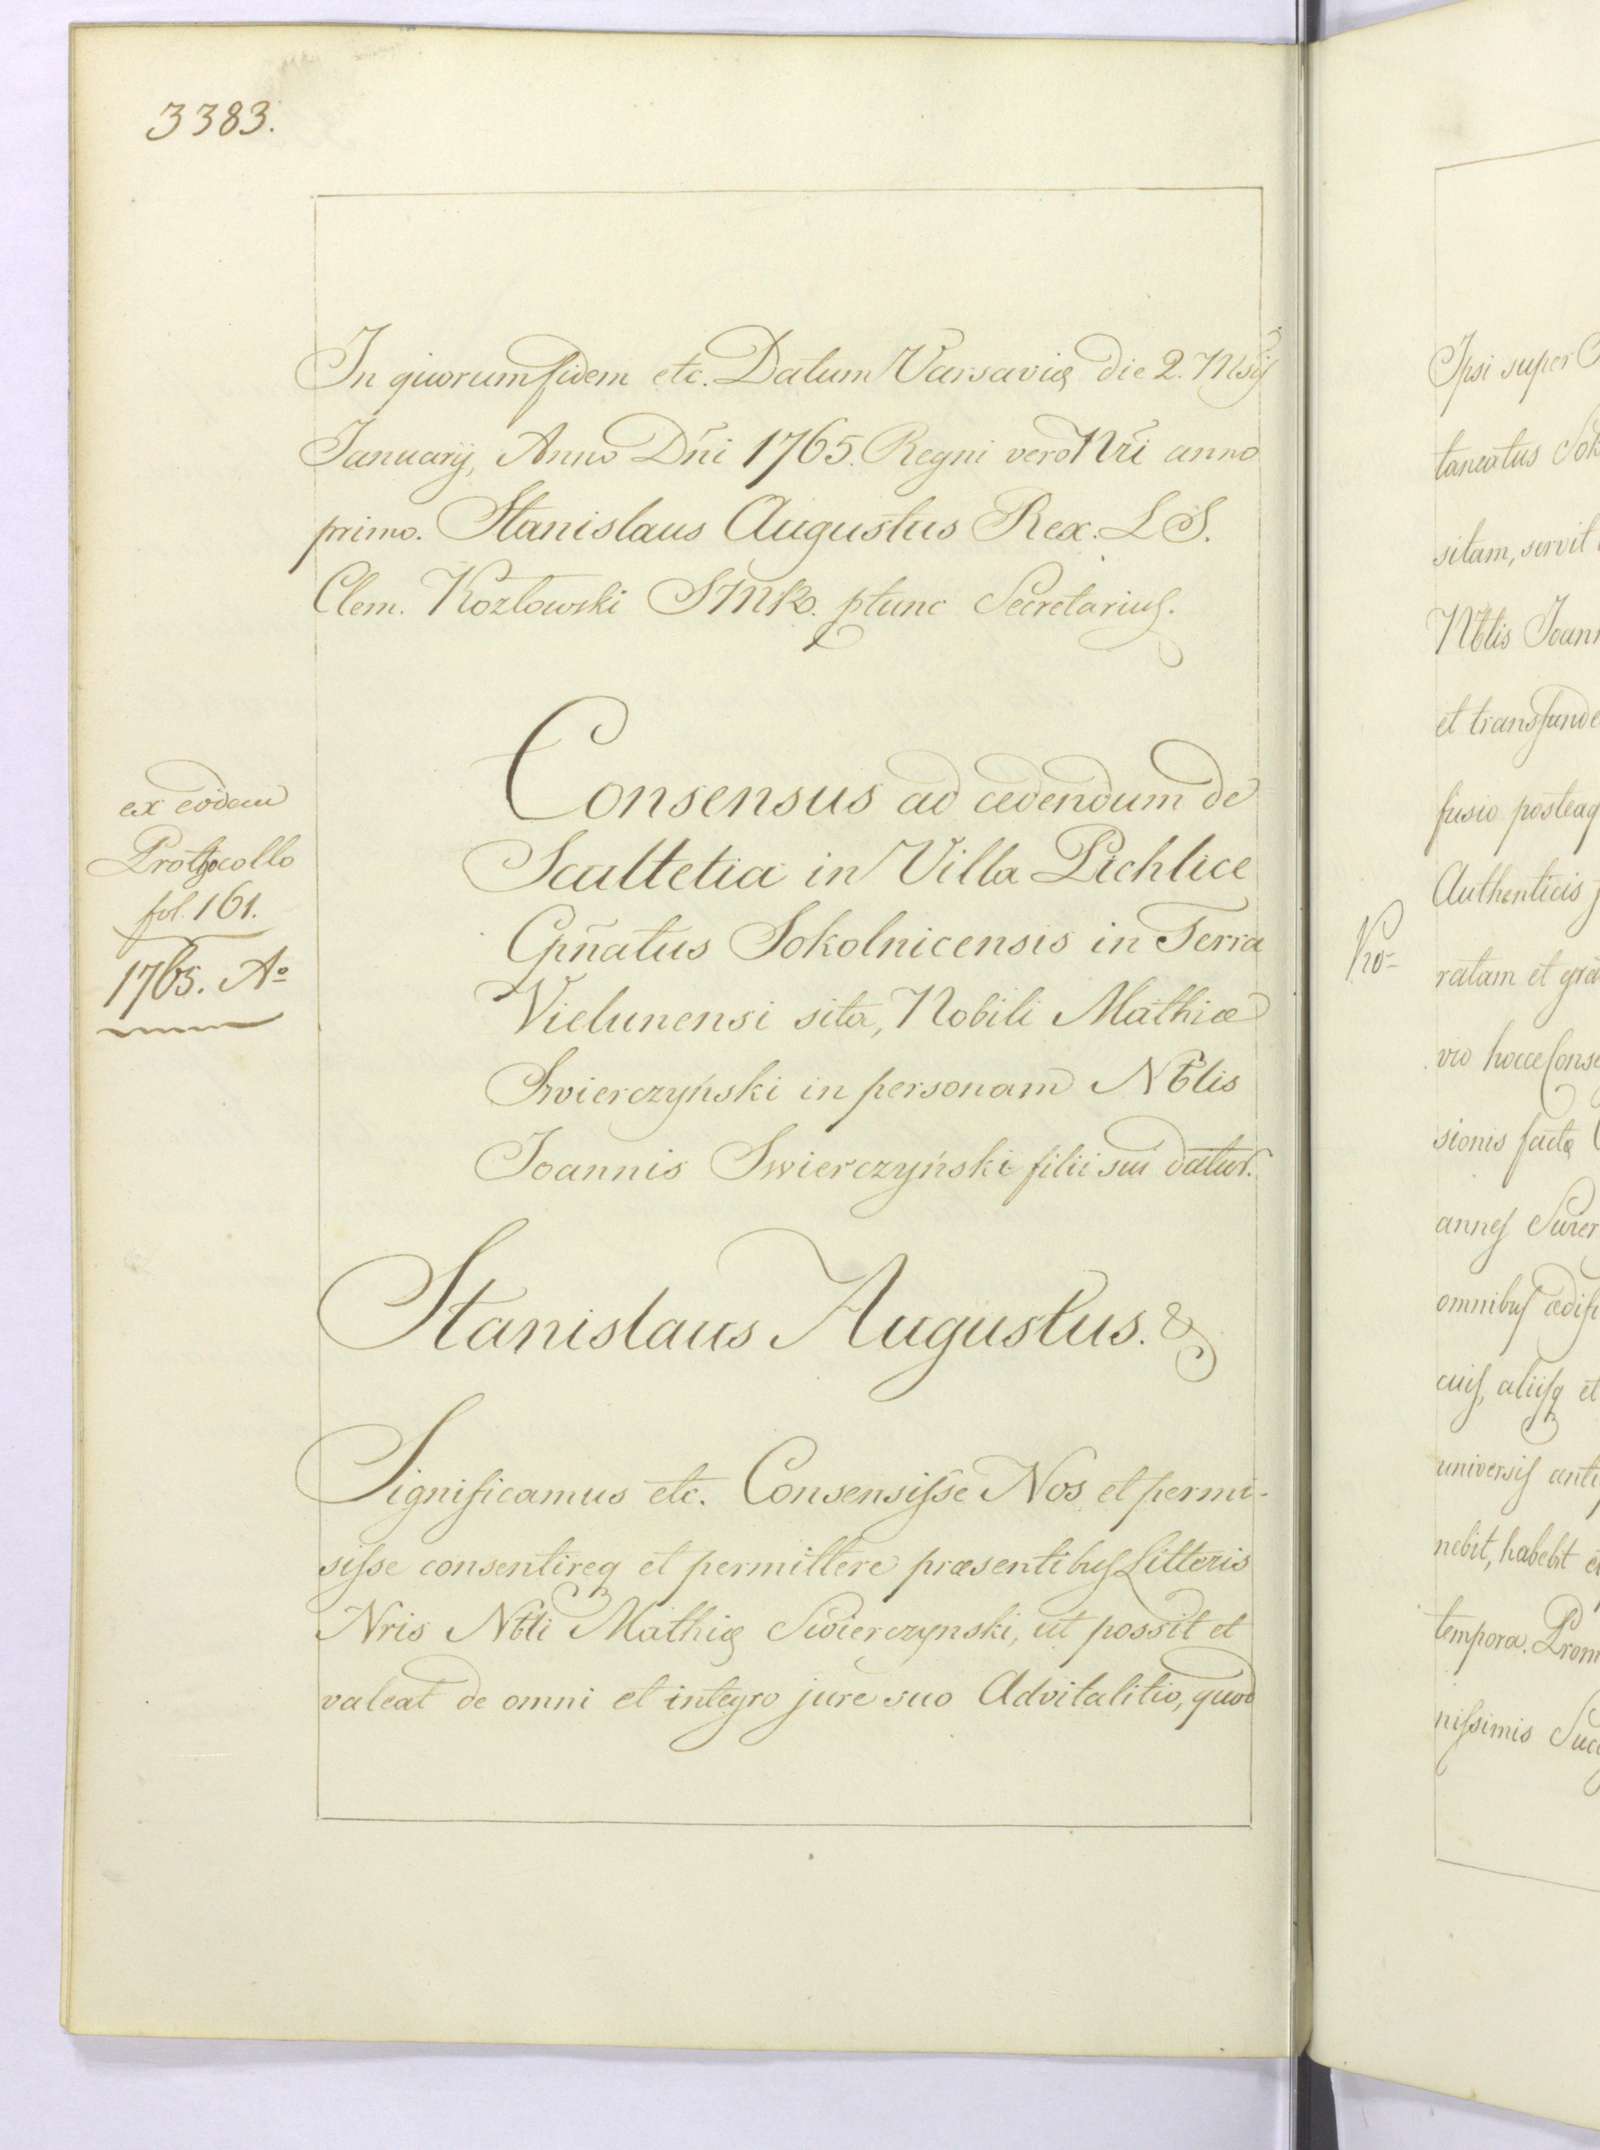 3383.
In quorum fidem etc. Datum Varsaviæ die 2. Msis
January, Anno Dñi 1765. Regni vero Nri anno
primo. Stanislaus Augustus Rex. L S.
Clem. Kozlowski SMRo. ptunc Secretarius.
ex eodem
Prothocollo
fol. 161.
1765. Ao
Consensus ad cedendum de
Scultetia in Villa Pichlice
Cpñatus Sokolnicensis in Terra
Vielunensi sita, Nobili Mathiæ
Swierczyński in personam Nblis
Joannis Swierczyński filii sui datur.
Stanislaus Augustus. &
Significamus etc. Consensisse Nos et permi-
sisse consentireq et permittere præsentibus Litteris
Nris Nbli Mathiæ Swierczynski, ut possit et
valeat de omni et integro jure suo Advitalitio, quod
Ipsi super
taneatus Sok
sitam, servit
Nblis Joann
et transfunde
fusio posteaq
Authenticis
ratam et gra
vio hocce Conse
sionis factæ
annes Swier
omnibus ædifi
cuis, aliisq et
universis anti
nebit, habebt e
tempora. Prom
nissimis Succ